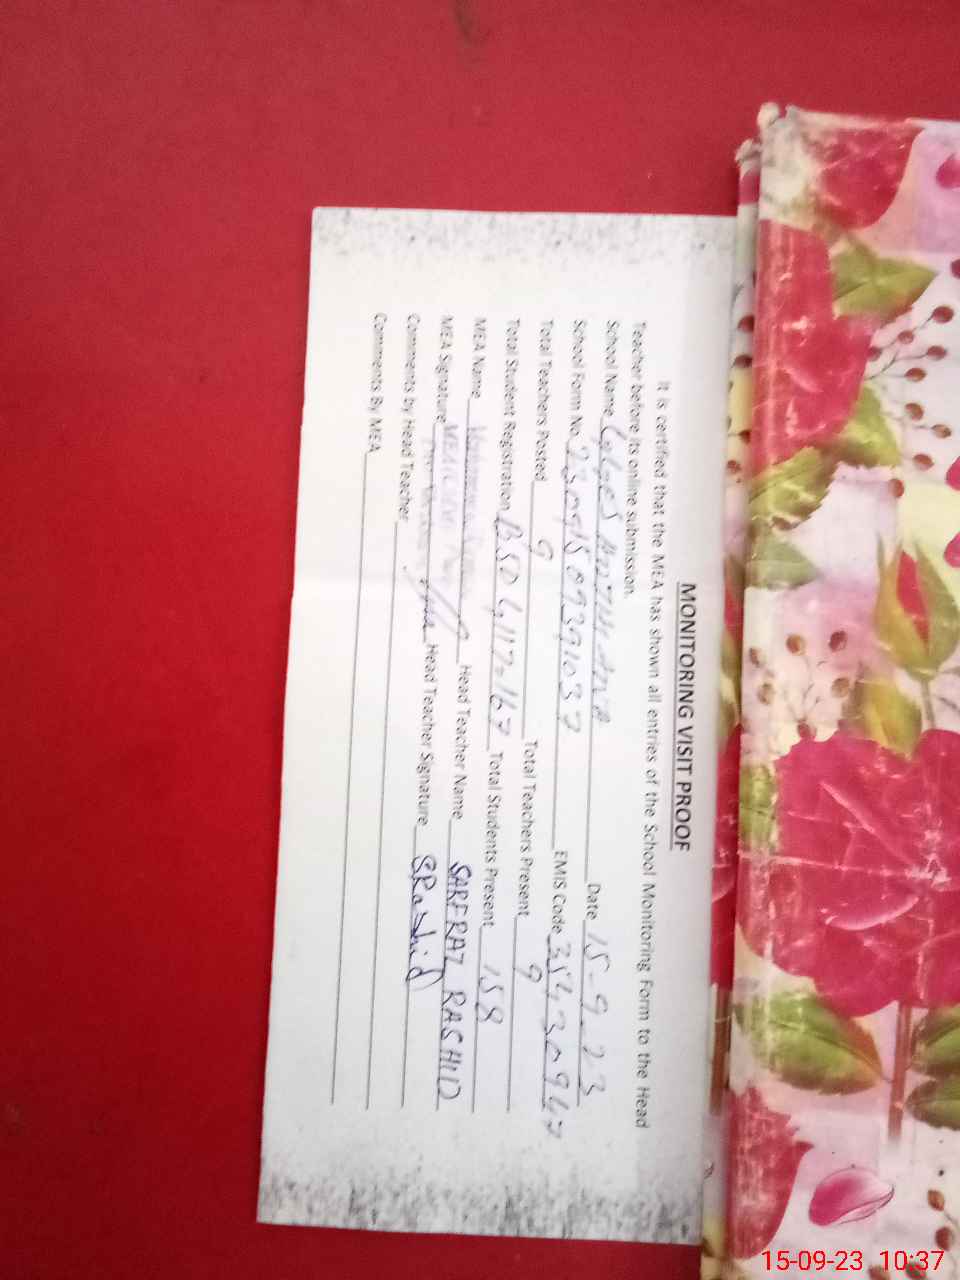 MONITORING VISIT PROOF
It is certified that the MEA has shown all entries of the School Monitoring Form to the Head
Teacher before its online submission.
School Name Date 15-9-23
School Form No. EMIS Code 35430947
Total Teachers Posted 9 Total Teachers Present 9
Total Student Registration 167 Total Students Present 158
MEA Name Head Teacher Name SARFRAZ RASHID
MEA Signature Head Teacher Signature SRashid
Comments by Head Teacher
Comments By MEA
15-09-23 10:37